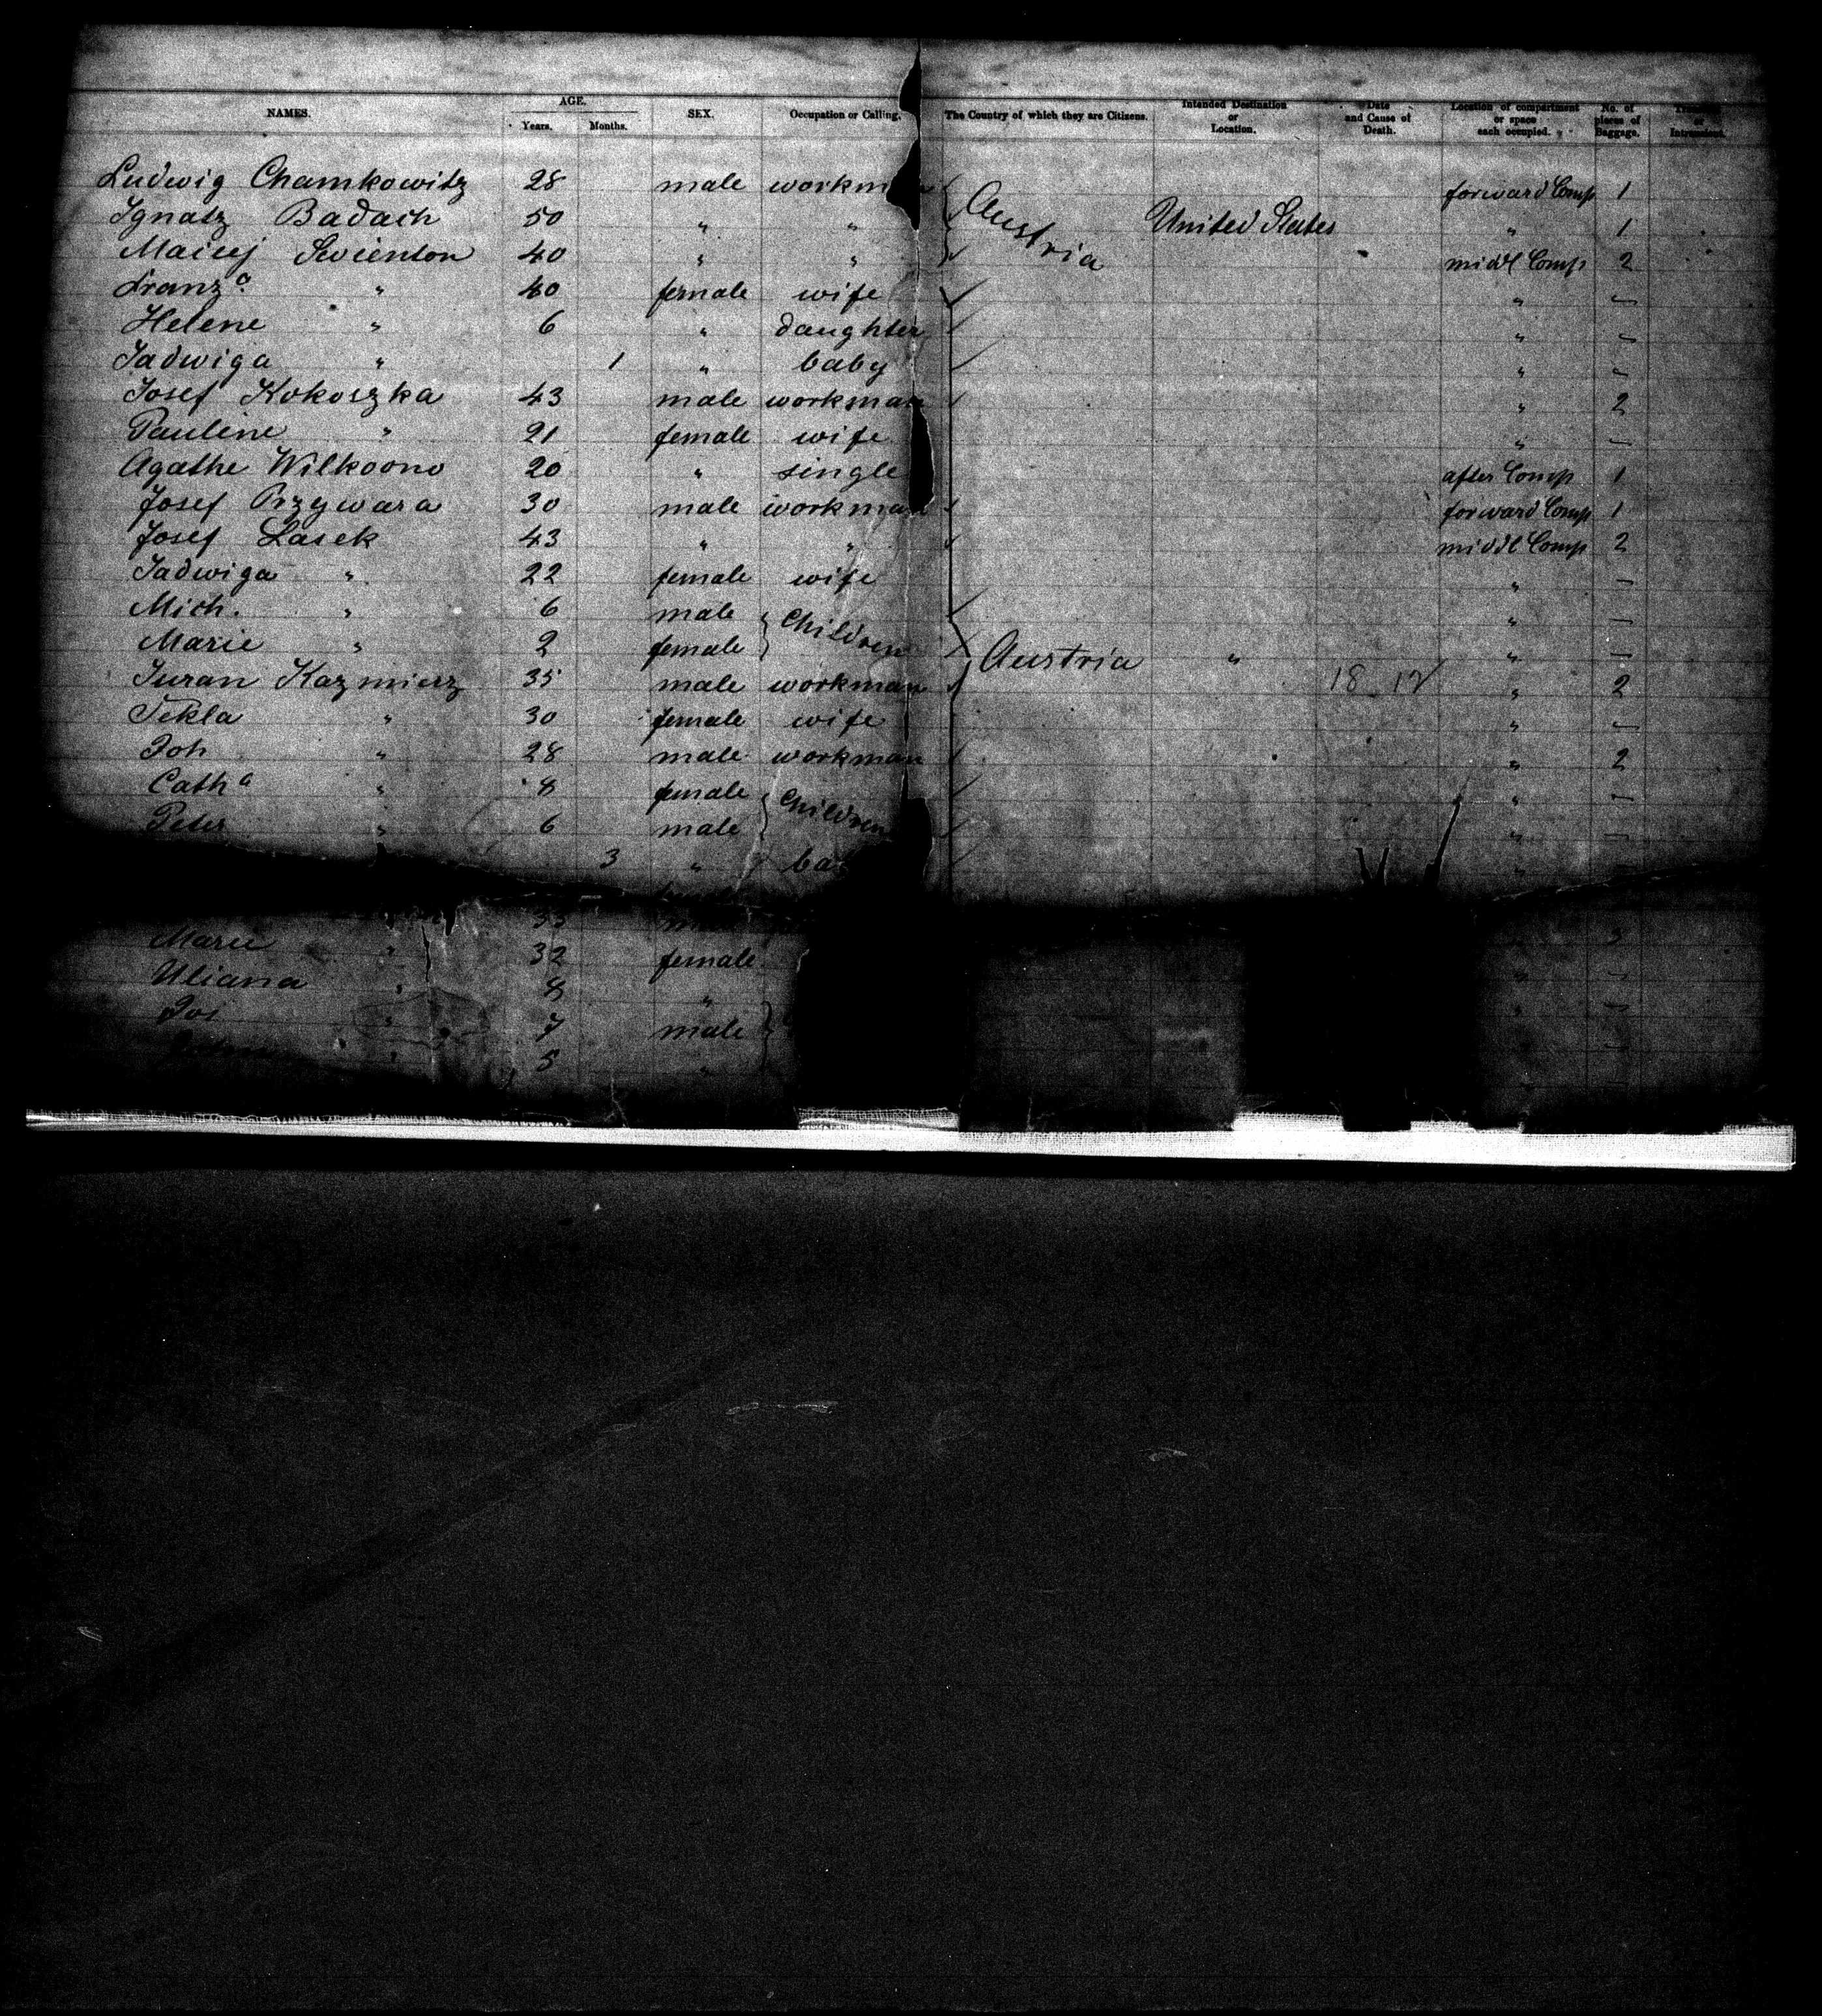 NAMES. AGE. Years. Months. SEX. Occupation or Calling. The Country of which they are Citizens. Intended Destination or Location. Date and Cause of Death. Location of compartment or space each occupied. No. of pieces of Baggage.
Ludwig Chamkowitz 28 male forward Comp 1
Ignatz Badach 50 " " Austria United States " 1
Maciej Swienton 40 " " midl Comp 2
Franz a " 40 female wife "
Helene " 6 " daughter "
Jadwiga " 1 " baby "
Josef Kokoszka 43 male workman " 2
Pauline " 21 female wife "
Agathe 20 " single after Comp 1
Josef Przywara 30 male workman forward Comp 1
Josef Lasek 43 " " middl Comp 2
Jadwiga " 22 female wife "
Mich. " 6 male Children "
Marie " 2 female Austria " "
Juran Kazmierz 35 male workman 18 12 " 2
Tekla " 30 female wife "
Joh " 28 male workman " 2
Cath a " 8 female Children "
Peter " 6 male "
3 " "
33
Marie " 32 female "
Uliana " 8 " "
Jos " 7 male "
" 5 " "